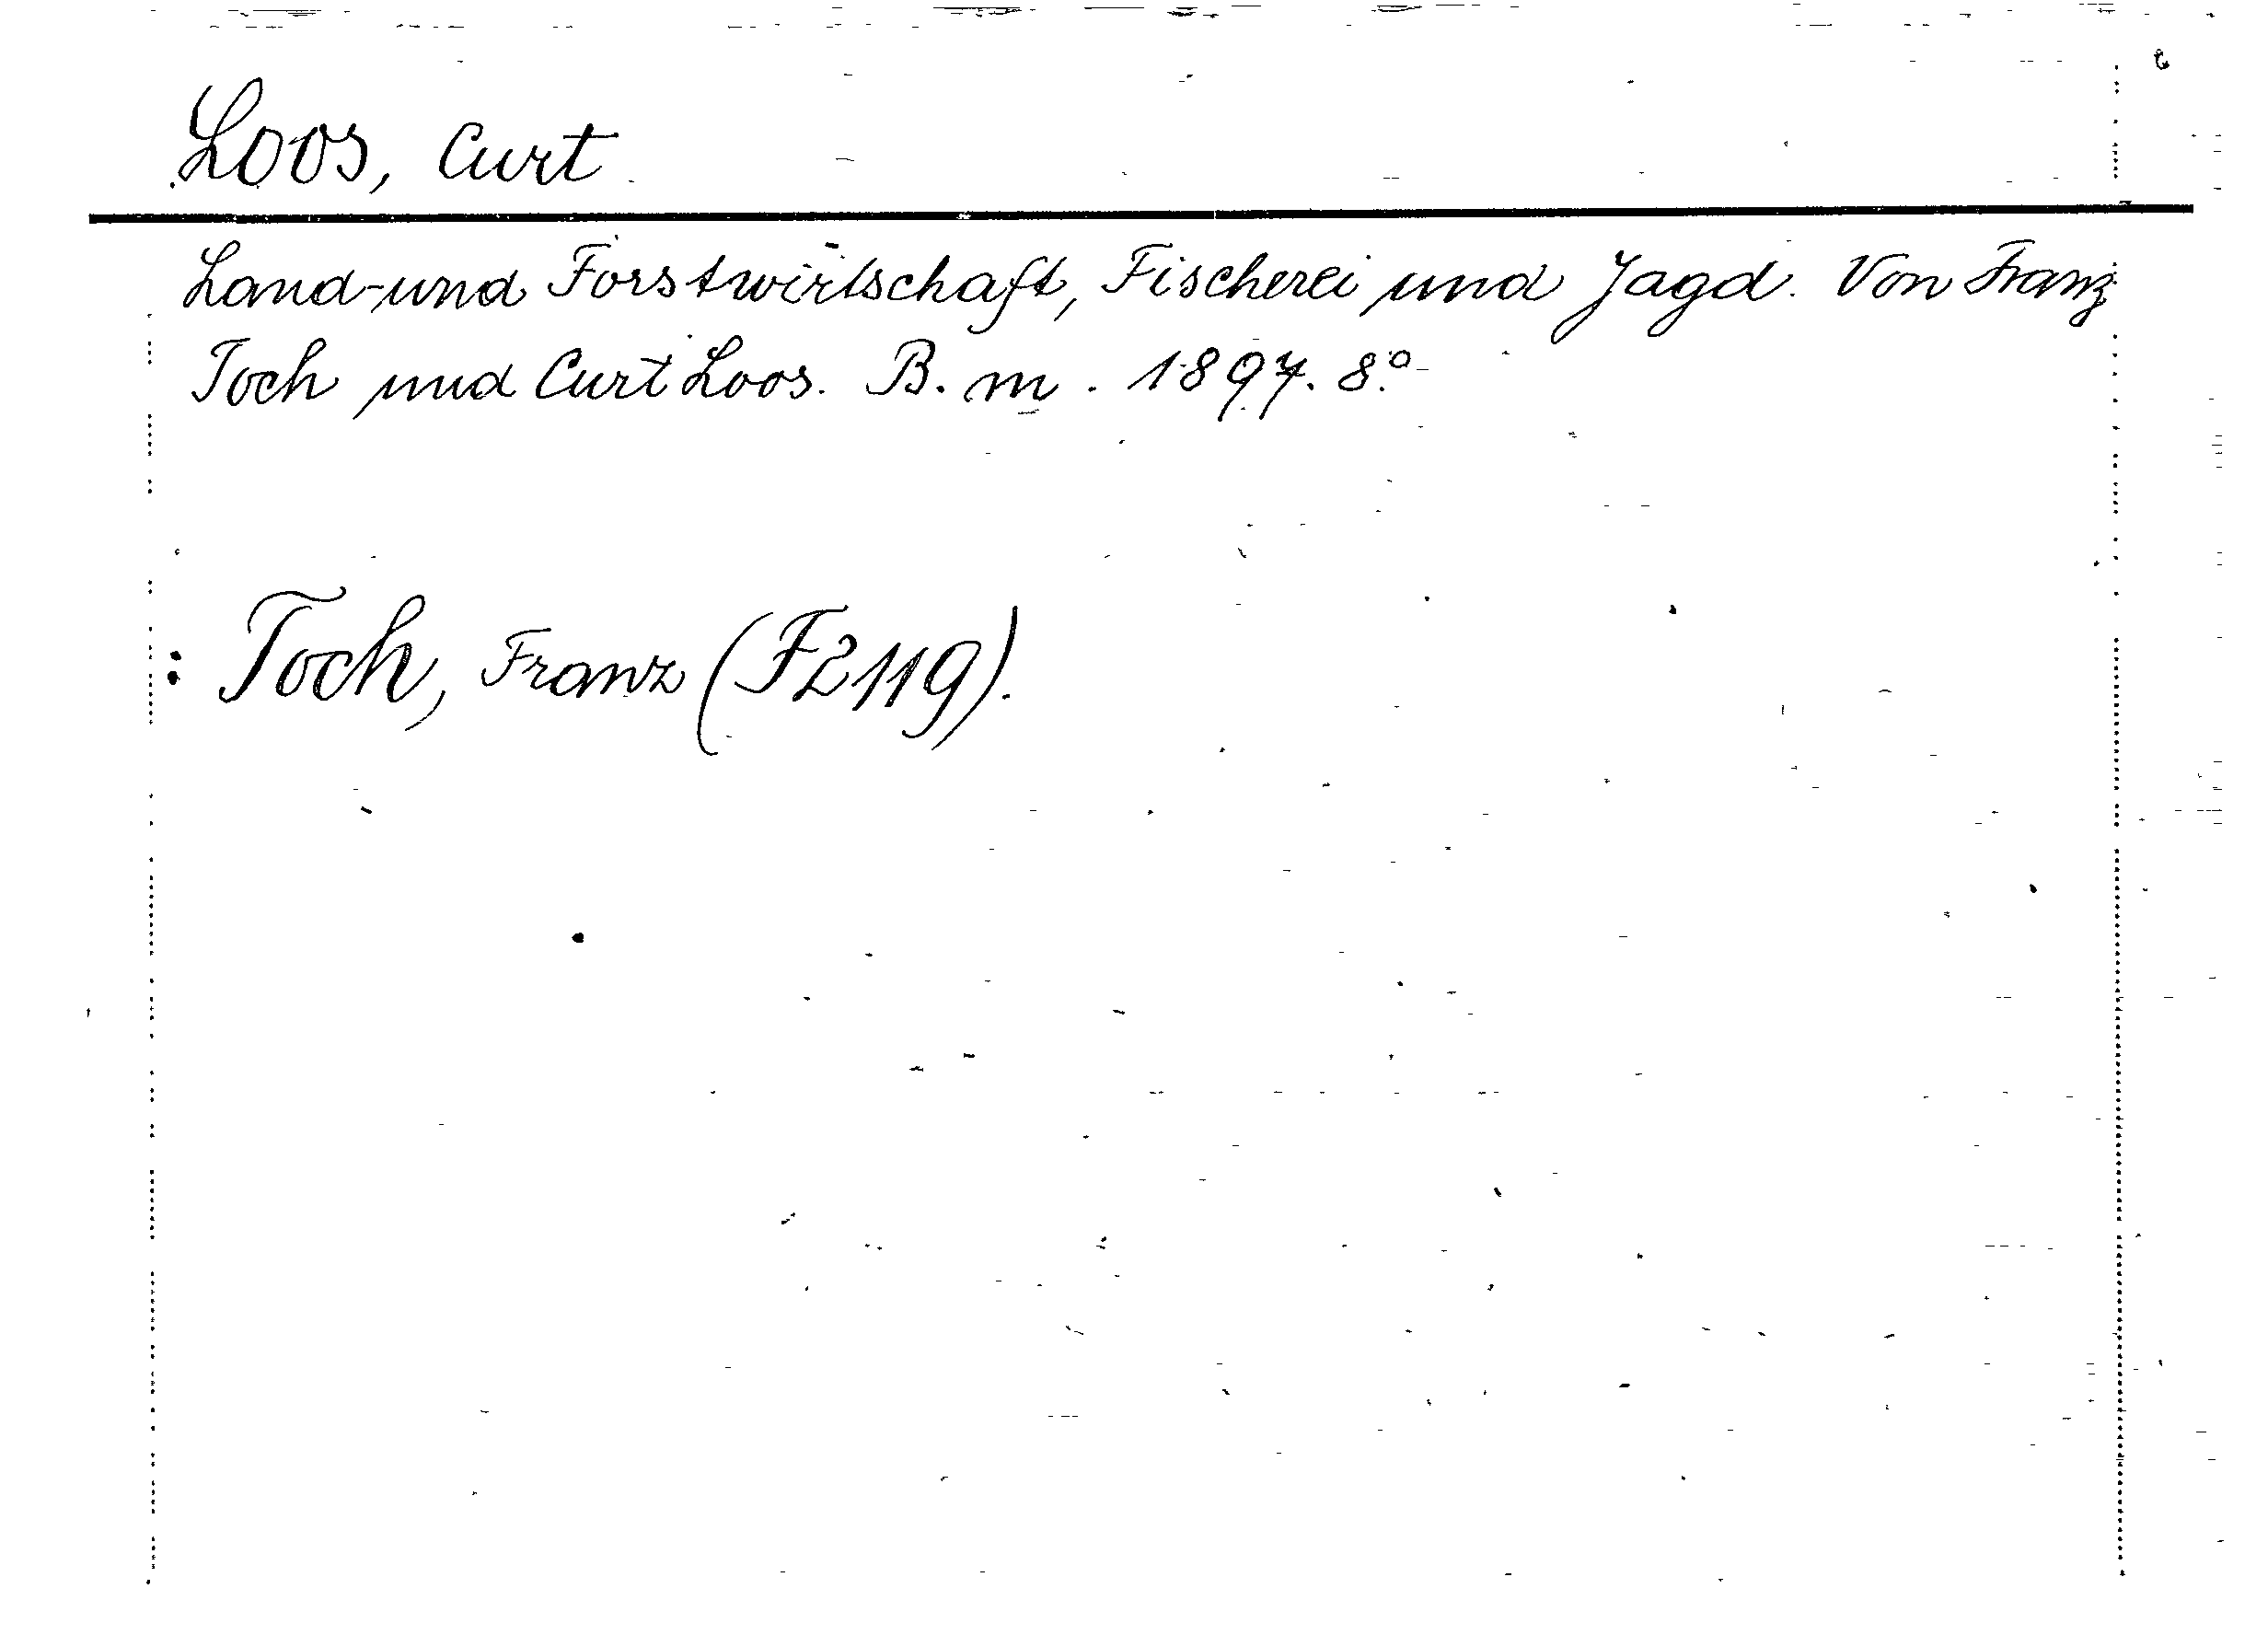 Loos, Curt
Land- und Forstwirtschaft, Fischerei und Jagd. Von Franz
Toch und Curt Loos. B. m. 1897. 8.º
: Toch, Franz (F2119).